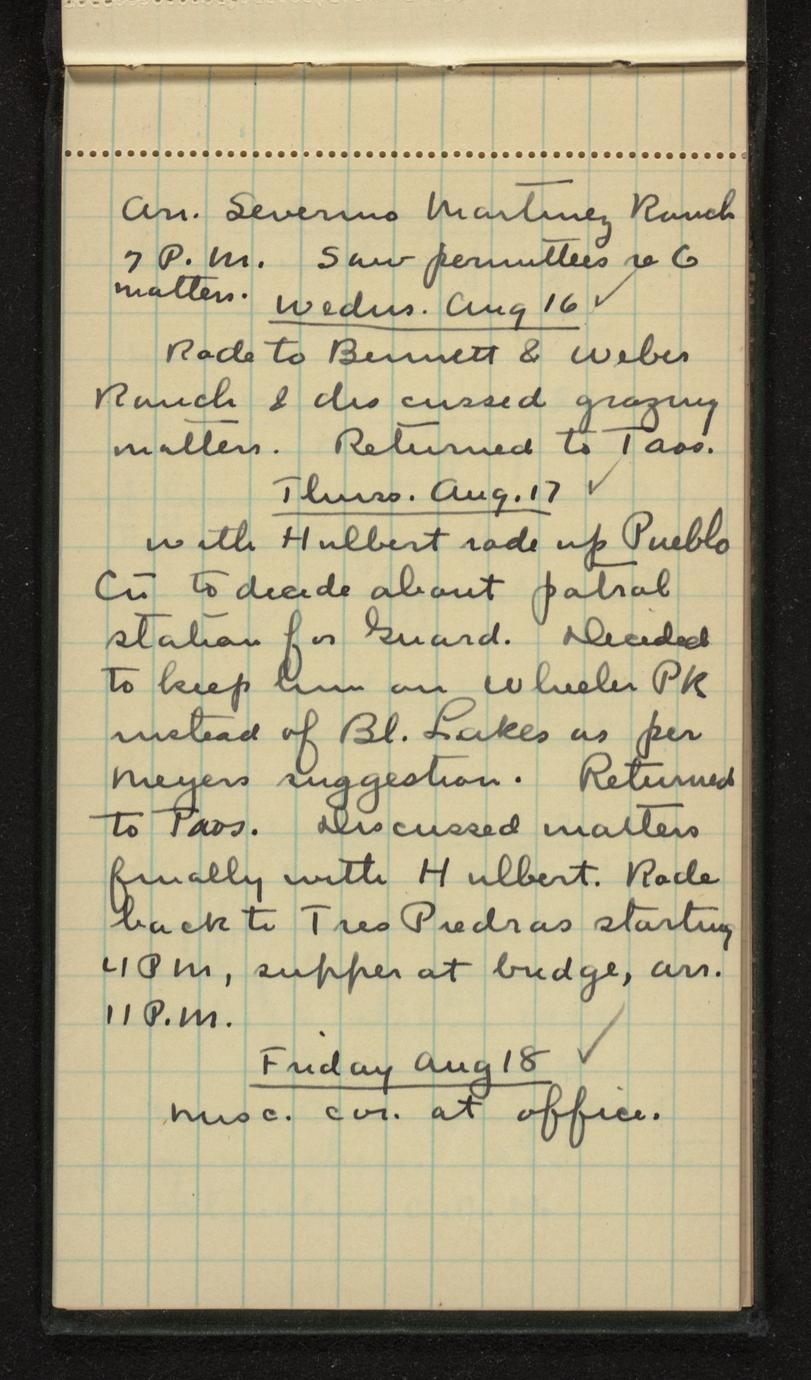 Arr. Severino Martinez Ranch
7 P.M. Saw permittees re G
matters.
Wednes. Aug 16 ✓
Rode to Bennett & Weber
Ranch & discussed grazing
matters. Returned to Taos.
Thurs. Aug. 17 ✓
with Hulbert rode up Pueblo
Cr to decide about patrol
station for Guard. Decided
to keep him on Wheeler PK
instead of Bl. Lakes as per
Meyers suggestion. Returned
to Taos. Discussed matters
finally with Hulbert. Rode
back to Tres Piedras starting
4 PM, supper at bridge, arr.
11 P.M.
Friday Aug 18 ✓
Misc. cor. at office.